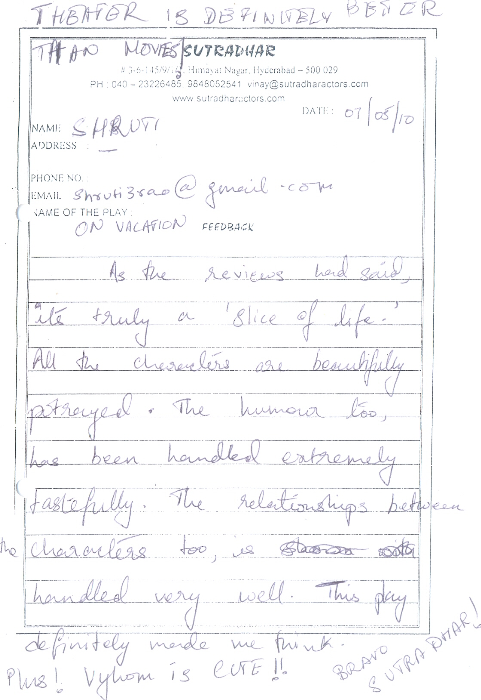 THEATER IS DEFINITELY BETTER
THAN MOVIES/SUTRADHAR
# 3-6-145/9/, Himayat Nagar, Hyderabad – 500 029
PH : 040 – 23226485 9848052541 vinay@sutradharactors.com
www.sutradharactors.com
DATE : 07/05/10
NAME SHRUTI
ADDRESS —
PHONE NO.
EMAIL shruti3rao@gmail.com
NAME OF THE PLAY :
ON VACATION FEEDBACK
As the reviews had said,
its truly a 'slice of life.'
All the characters are beautifully
potrayed. The humour too,
has been handled extremely
tastefully. The relationships between
the characters too, is
handled very well. This play
definitely made me think.
Plus! Vyhom is CUTE!!
BRAVO
SUTRADHAR!